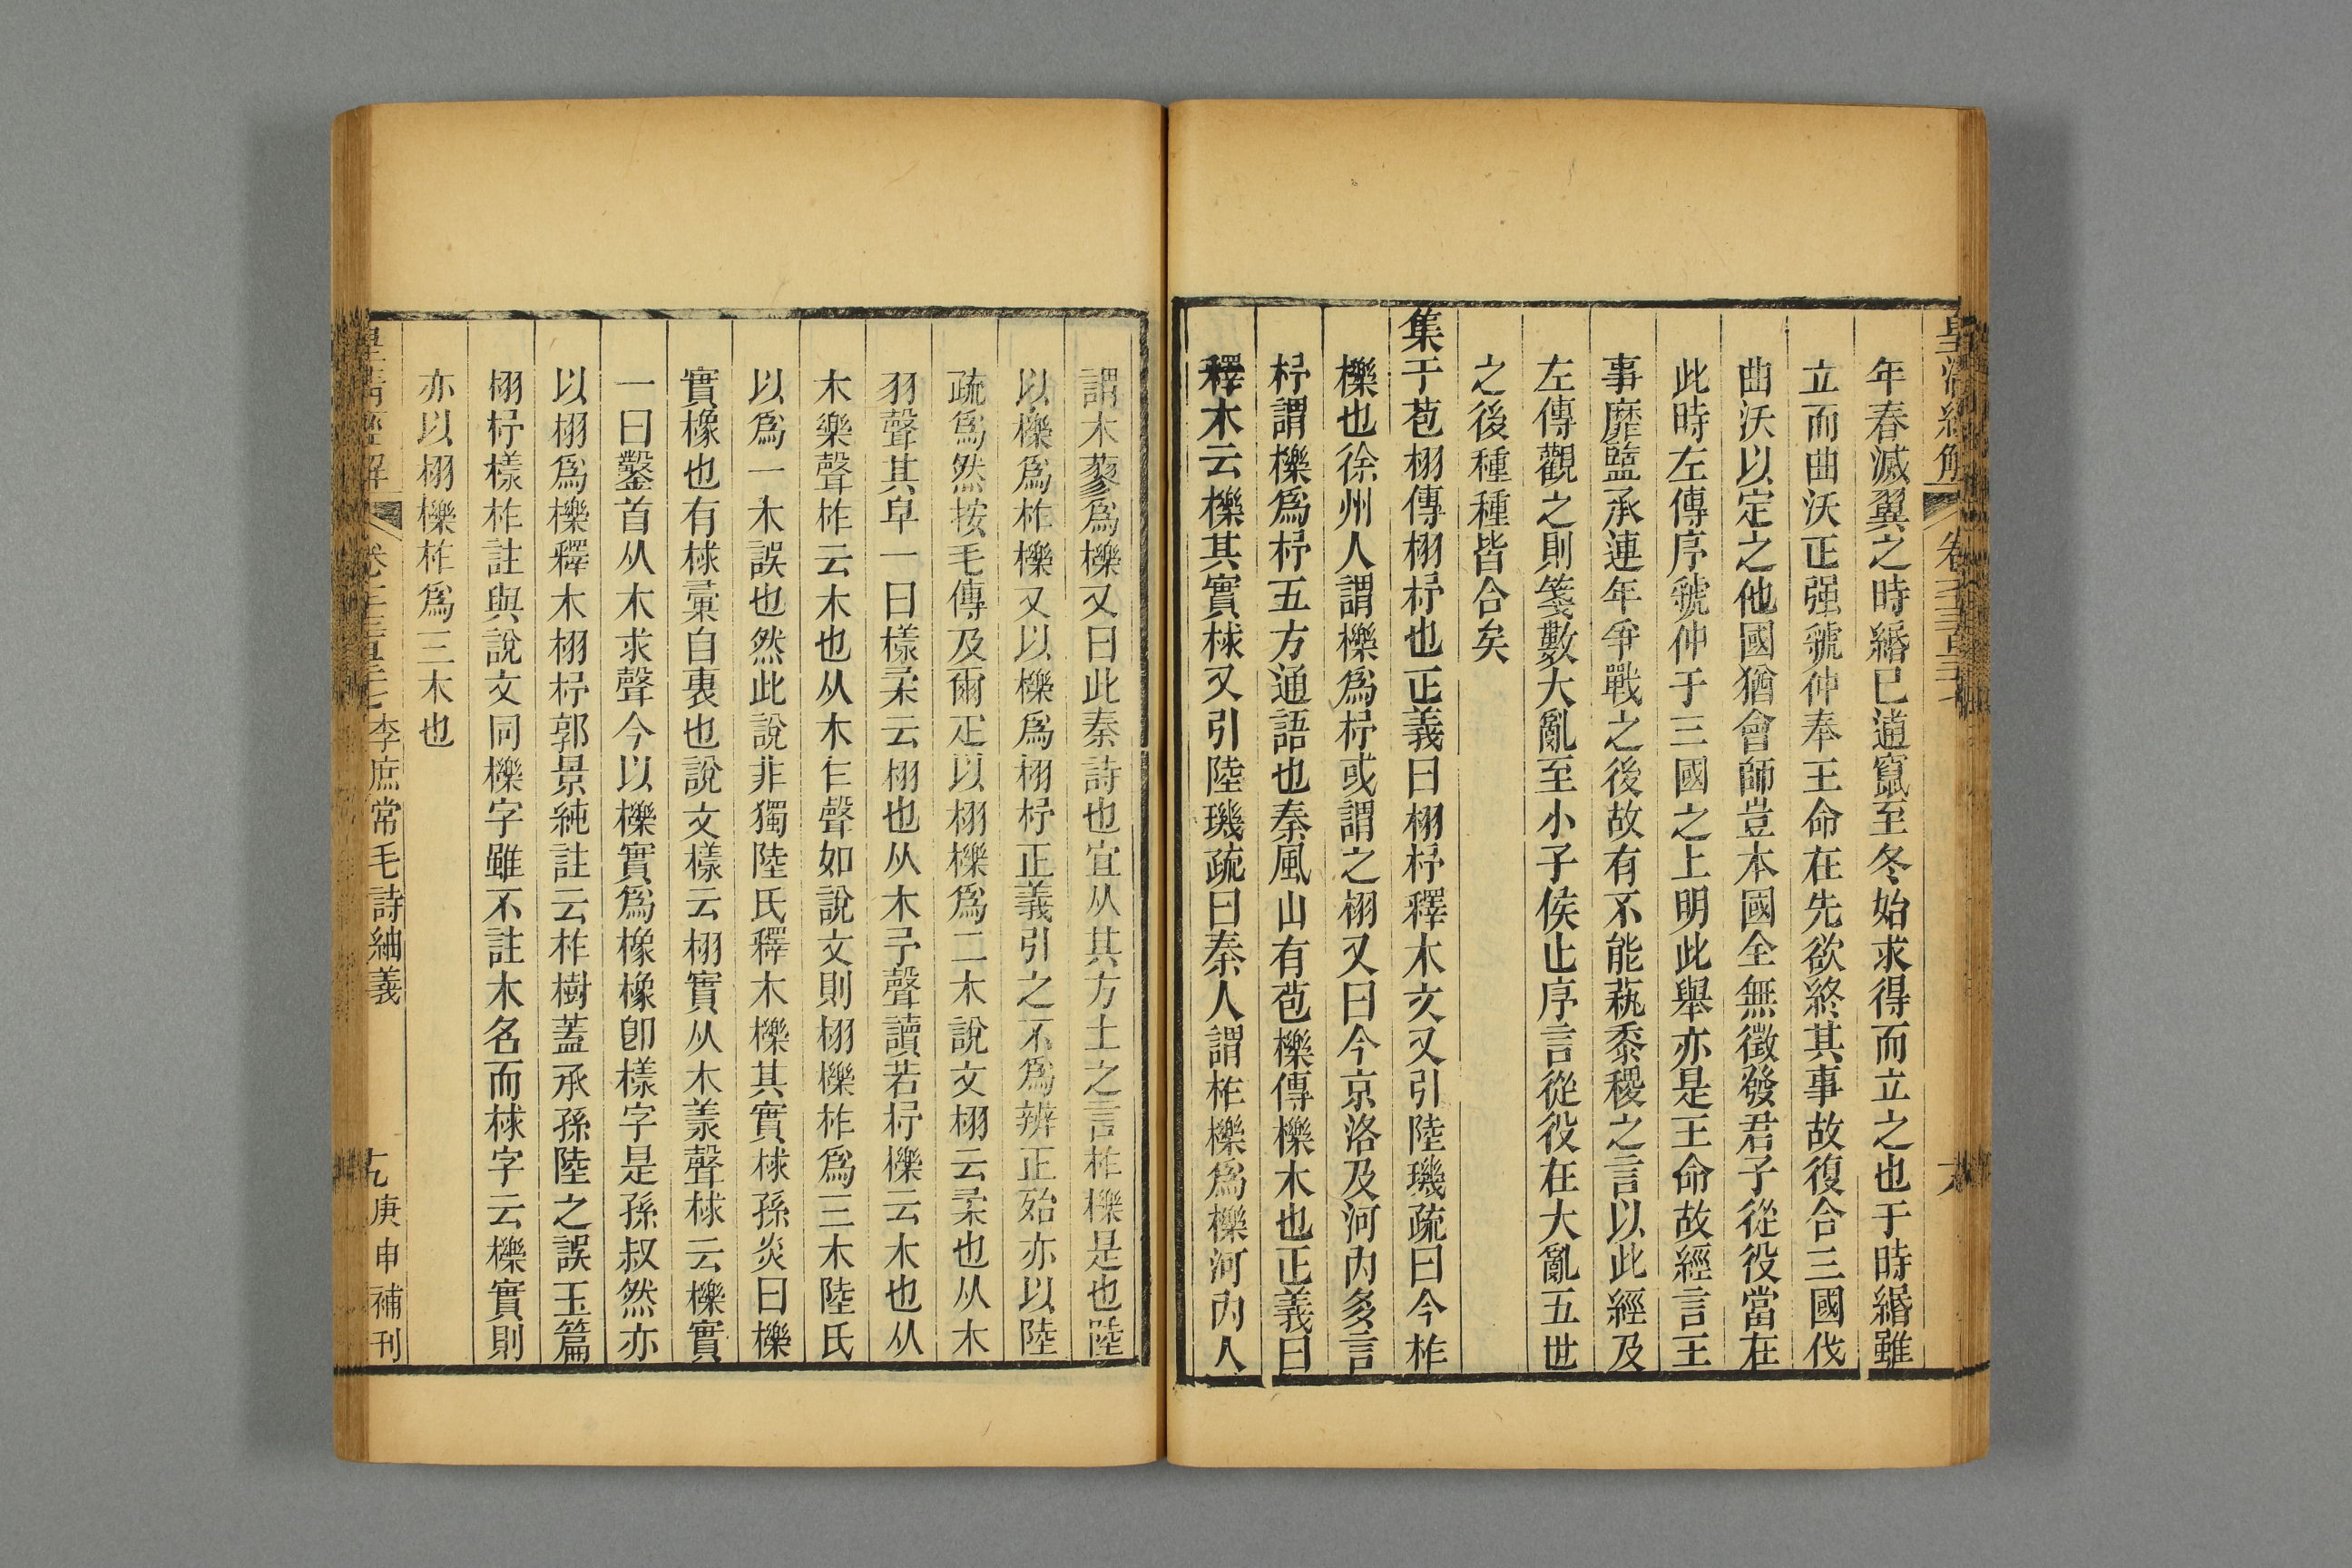 年春滅翼之時緡已逋竄至冬始求得而立之也于時緡雖
立而曲沃正强虢仲奉王命在先欲終其事故復合三國伐
曲沃以定之他國猶會師豈本國全無徵發君子從役當在
此時左傳序虢仲于三國之上明此舉亦是王命故經言王
事靡盬承連年爭戰之後故有不能蓺黍稷之言以此經及
左傳觀之則箋數大亂至小子侯止序言從役在大亂五世
之後種種皆合矣
集于苞栩傳栩杼也正義曰栩杼釋木文又引陸璣疏曰今柞
櫟也徐州人謂櫟爲杼或謂之栩又曰今京洛及河內多言
杼謂櫟爲杼五方通語也秦風山有苞櫟傳櫟木也正義曰
釋木云櫟其實梂又引陸璣疏曰秦人謂柞櫟爲櫟河內人
謂木蓼爲櫟又曰此秦詩也宜从其方土之言柞櫟是也陸
以櫟爲柞櫟又以櫟爲栩杼正義引之不爲辨正殆亦以陸
疏爲然按毛傳及爾疋以栩櫟爲二木說文栩云柔也从木
羽聲其皁一曰樣柔云栩也从木予聲讀若杼櫟云木也从
木樂聲柞云木也从木乍聲如說文則栩櫟柞爲三木陸氏
以爲一木誤也然此說非獨陸氏釋木櫟其實梂孫炎曰櫟
實橡也有梂彙自裹也說文樣云栩實从木羕聲梂云櫟實
一曰鑿首从木求聲今以櫟實爲橡橡卽樣字是孫叔然亦
以栩爲櫟釋木栩杼郭景純註云柞樹蓋承孫陸之誤玉篇
栩杼樣柞註與說文同櫟字雖不註木名而梂字云櫟實則
亦以栩櫟柞爲三木也
皇清經解
李庶常毛詩紬義
十九
庚申補刊